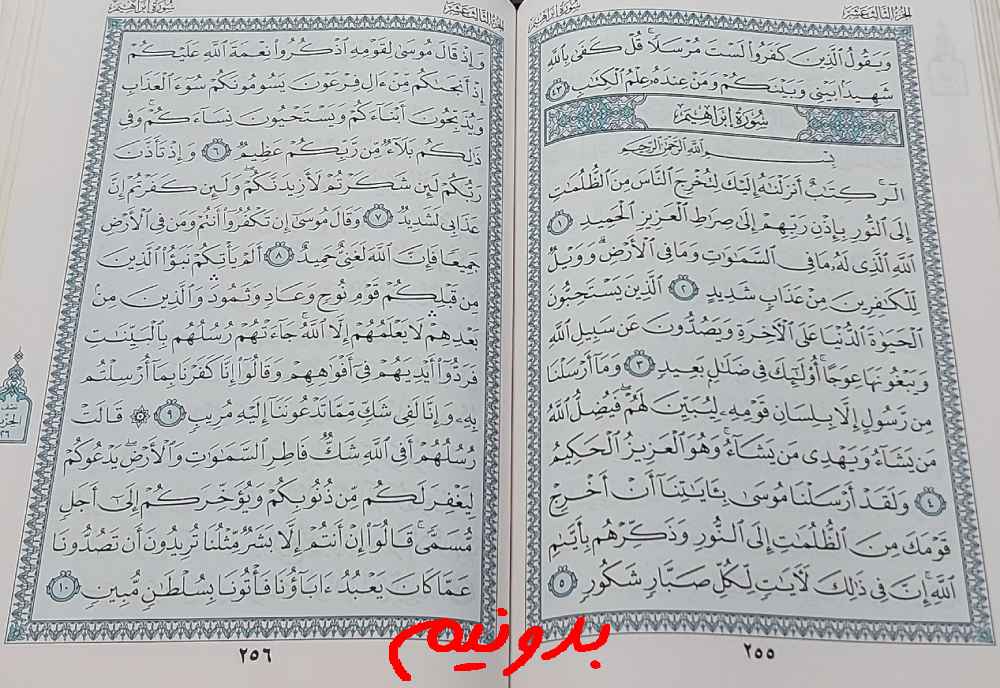 الجزء الثالث عشر
سورة إبراهيم
وَيَقُولُ ٱلَّذِينَ كَفَرُوا۟ لَسْتَ مُرْسَلًا ۚ قُلْ كَفَىٰ بِٱللَّهِ
شَهِيدًۢا بَيْنِى وَبَيْنَكُمْ وَمَنْ عِندَهُۥ عِلْمُ ٱلْكِتَٰبِ ٤٣
سُورَةُ إِبْرَاهِيمَ
بِسْمِ ٱللَّهِ ٱلرَّحْمَٰنِ ٱلرَّحِيمِ
الٓر ۚ كِتَٰبٌ أَنزَلْنَٰهُ إِلَيْكَ لِتُخْرِجَ ٱلنَّاسَ مِنَ ٱلظُّلُمَٰتِ
إِلَى ٱلنُّورِ بِإِذْنِ رَبِّهِمْ إِلَىٰ صِرَٰطِ ٱلْعَزِيزِ ٱلْحَمِيدِ ١
ٱللَّهِ ٱلَّذِى لَهُۥ مَا فِى ٱلسَّمَٰوَٰتِ وَمَا فِى ٱلْأَرْضِ ۗ وَوَيْلٌ
لِّلْكَٰفِرِينَ مِنْ عَذَابٍ شَدِيدٍ ٢ ٱلَّذِينَ يَسْتَحِبُّونَ
ٱلْحَيَوٰةَ ٱلدُّنْيَا عَلَى ٱلْءَاخِرَةِ وَيَصُدُّونَ عَن سَبِيلِ ٱللَّهِ
وَيَبْغُونَهَا عِوَجًا ۚ أُو۟لَٰٓئِكَ فِى ضَلَٰلٍۭ بَعِيدٍ ٣ وَمَآ أَرْسَلْنَا
مِن رَّسُولٍ إِلَّا بِلِسَانِ قَوْمِهِۦ لِيُبَيِّنَ لَهُمْ ۖ فَيُضِلُّ ٱللَّهُ
مَن يَشَآءُ وَيَهْدِى مَن يَشَآءُ ۚ وَهُوَ ٱلْعَزِيزُ ٱلْحَكِيمُ
٤ وَلَقَدْ أَرْسَلْنَا مُوسَىٰ بِـَٔايَٰتِنَآ أَنْ أَخْرِجْ
قَوْمَكَ مِنَ ٱلظُّلُمَٰتِ إِلَى ٱلنُّورِ وَذَكِّرْهُم بِأَيَّىٰمِ
ٱللَّهِ ۚ إِنَّ فِى ذَٰلِكَ لَءَايَٰتٍ لِّكُلِّ صَبَّارٍ شَكُورٍ ٥
٢٥٥
الجزء الثالث عشر
سورة إبراهيم
وَإِذْ قَالَ مُوسَىٰ لِقَوْمِهِ ٱذْكُرُوا۟ نِعْمَةَ ٱللَّهِ عَلَيْكُمْ
إِذْ أَنجَىٰكُم مِّنْ ءَالِ فِرْعَوْنَ يَسُومُونَكُمْ سُوٓءَ ٱلْعَذَابِ
وَيُذَبِّحُونَ أَبْنَآءَكُمْ وَيَسْتَحْيُونَ نِسَآءَكُمْ ۚ وَفِى
ذَٰلِكُم بَلَآءٌ مِّن رَّبِّكُمْ عَظِيمٌ ٦ وَإِذْ تَأَذَّنَ
رَبُّكُمْ لَئِن شَكَرْتُمْ لَأَزِيدَنَّكُمْ ۖ وَلَئِن كَفَرْتُمْ إِنَّ
عَذَابِى لَشَدِيدٌ ٧ وَقَالَ مُوسَىٰٓ إِن تَكْفُرُوٓا۟ أَنتُمْ وَمَن فِى ٱلْأَرْضِ
جَمِيعًا فَإِنَّ ٱللَّهَ لَغَنِىٌّ حَمِيدٌ ٨ أَلَمْ يَأْتِكُمْ نَبَؤُا۟ ٱلَّذِينَ
مِن قَبْلِكُمْ قَوْمِ نُوحٍ وَعَادٍ وَثَمُودَ ۛ وَٱلَّذِينَ مِنۢ
بَعْدِهِمْ ۛ لَا يَعْلَمُهُمْ إِلَّا ٱللَّهُ ۚ جَآءَتْهُمْ رُسُلُهُم بِٱلْبَيِّنَٰتِ
فَرَدُّوٓا۟ أَيْدِيَهُمْ فِىٓ أَفْوَٰهِهِمْ وَقَالُوٓا۟ إِنَّا كَفَرْنَا بِمَآ أُرْسِلْتُم
بِهِۦ وَإِنَّا لَفِى شَكٍّ مِّمَّا تَدْعُونَنَآ إِلَيْهِ مُرِيبٍ ٩ ۞ قَالَتْ
رُسُلُهُمْ أَفِى ٱللَّهِ شَكٌّ فَاطِرِ ٱلسَّمَٰوَٰتِ وَٱلْأَرْضِ ۖ يَدْعُوكُمْ
لِيَغْفِرَ لَكُم مِّن ذُنُوبِكُمْ وَيُؤَخِّرَكُمْ إِلَىٰٓ أَجَلٍ
مُّسَمًّى ۚ قَالُوٓا۟ إِنْ أَنتُمْ إِلَّا بَشَرٌ مِّثْلُنَا تُرِيدُونَ أَن تَصُدُّونَا
عَمَّا كَانَ يَعْبُدُ ءَابَآؤُنَا فَأْتُونَا بِسُلْطَٰنٍ مُّبِينٍ ١٠
٢٥٦
بدونیم